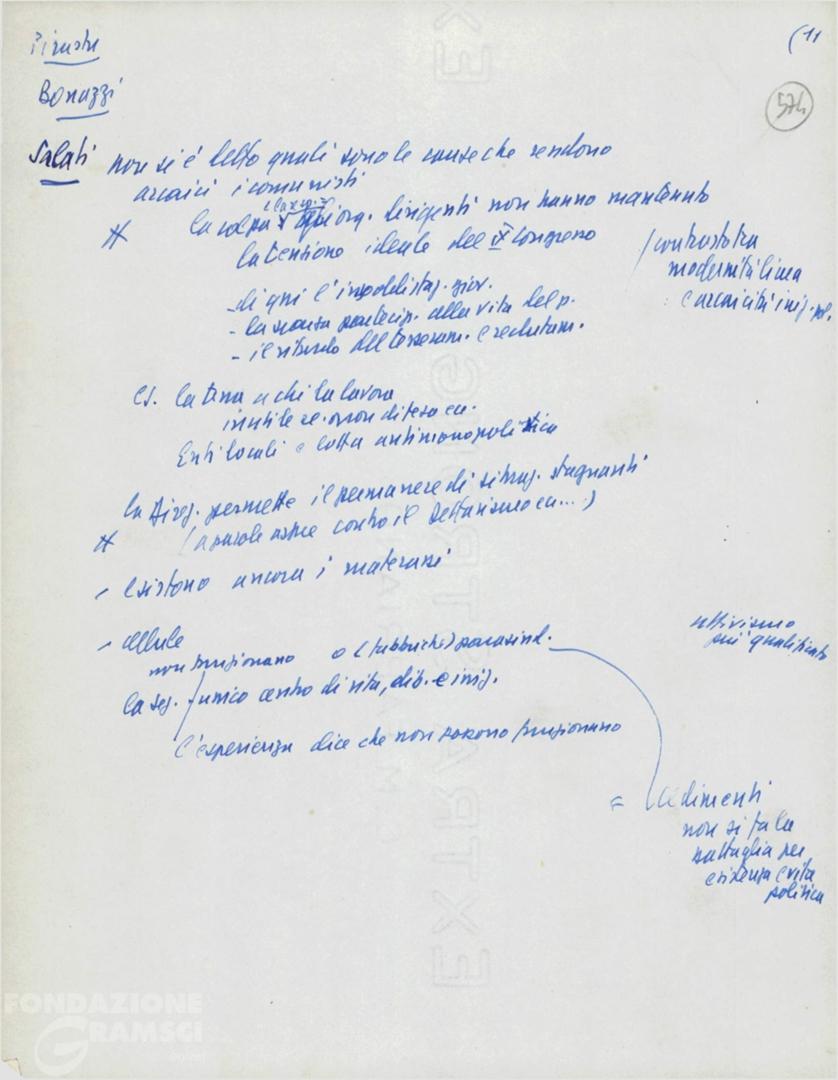 Pirastu
(11
574
Bonazzi
Salati non si è detto quali sono le cause che rendono
arcaici i comunisti
# la colpa è org. dirigenti non hanno mantenuto
la tensione ideale del IX Congresso
/ contrasto tra
modernità linea
e arcaicità iniz. pol.
- di qui l'insoddisfaz. giov.
- la scarsa partecip. alla vita del p.
- il ritardo del tesseram. e reclutam.
es. la terra a chi la lavora
inutile se non difesa ecc.
Enti locali e lotta antimonopolistica
la Direz. permette il permanere di situaz. stagnanti
# (a parole aspre contro il settarismo ecc...)
- esistono ancora i
- cellule
attivismo
più qualificato
non funzionano o (fabbriche) parasind.
la sez. unico centro di vita, dib. e iniz.
l'esperienza dice che non possono funzionano
= cedimenti
non si fa la
battaglia per
esistenza e vita
politica
FONDAZIONE
GRAMSCI
EXTRA STRONG
EXTRA